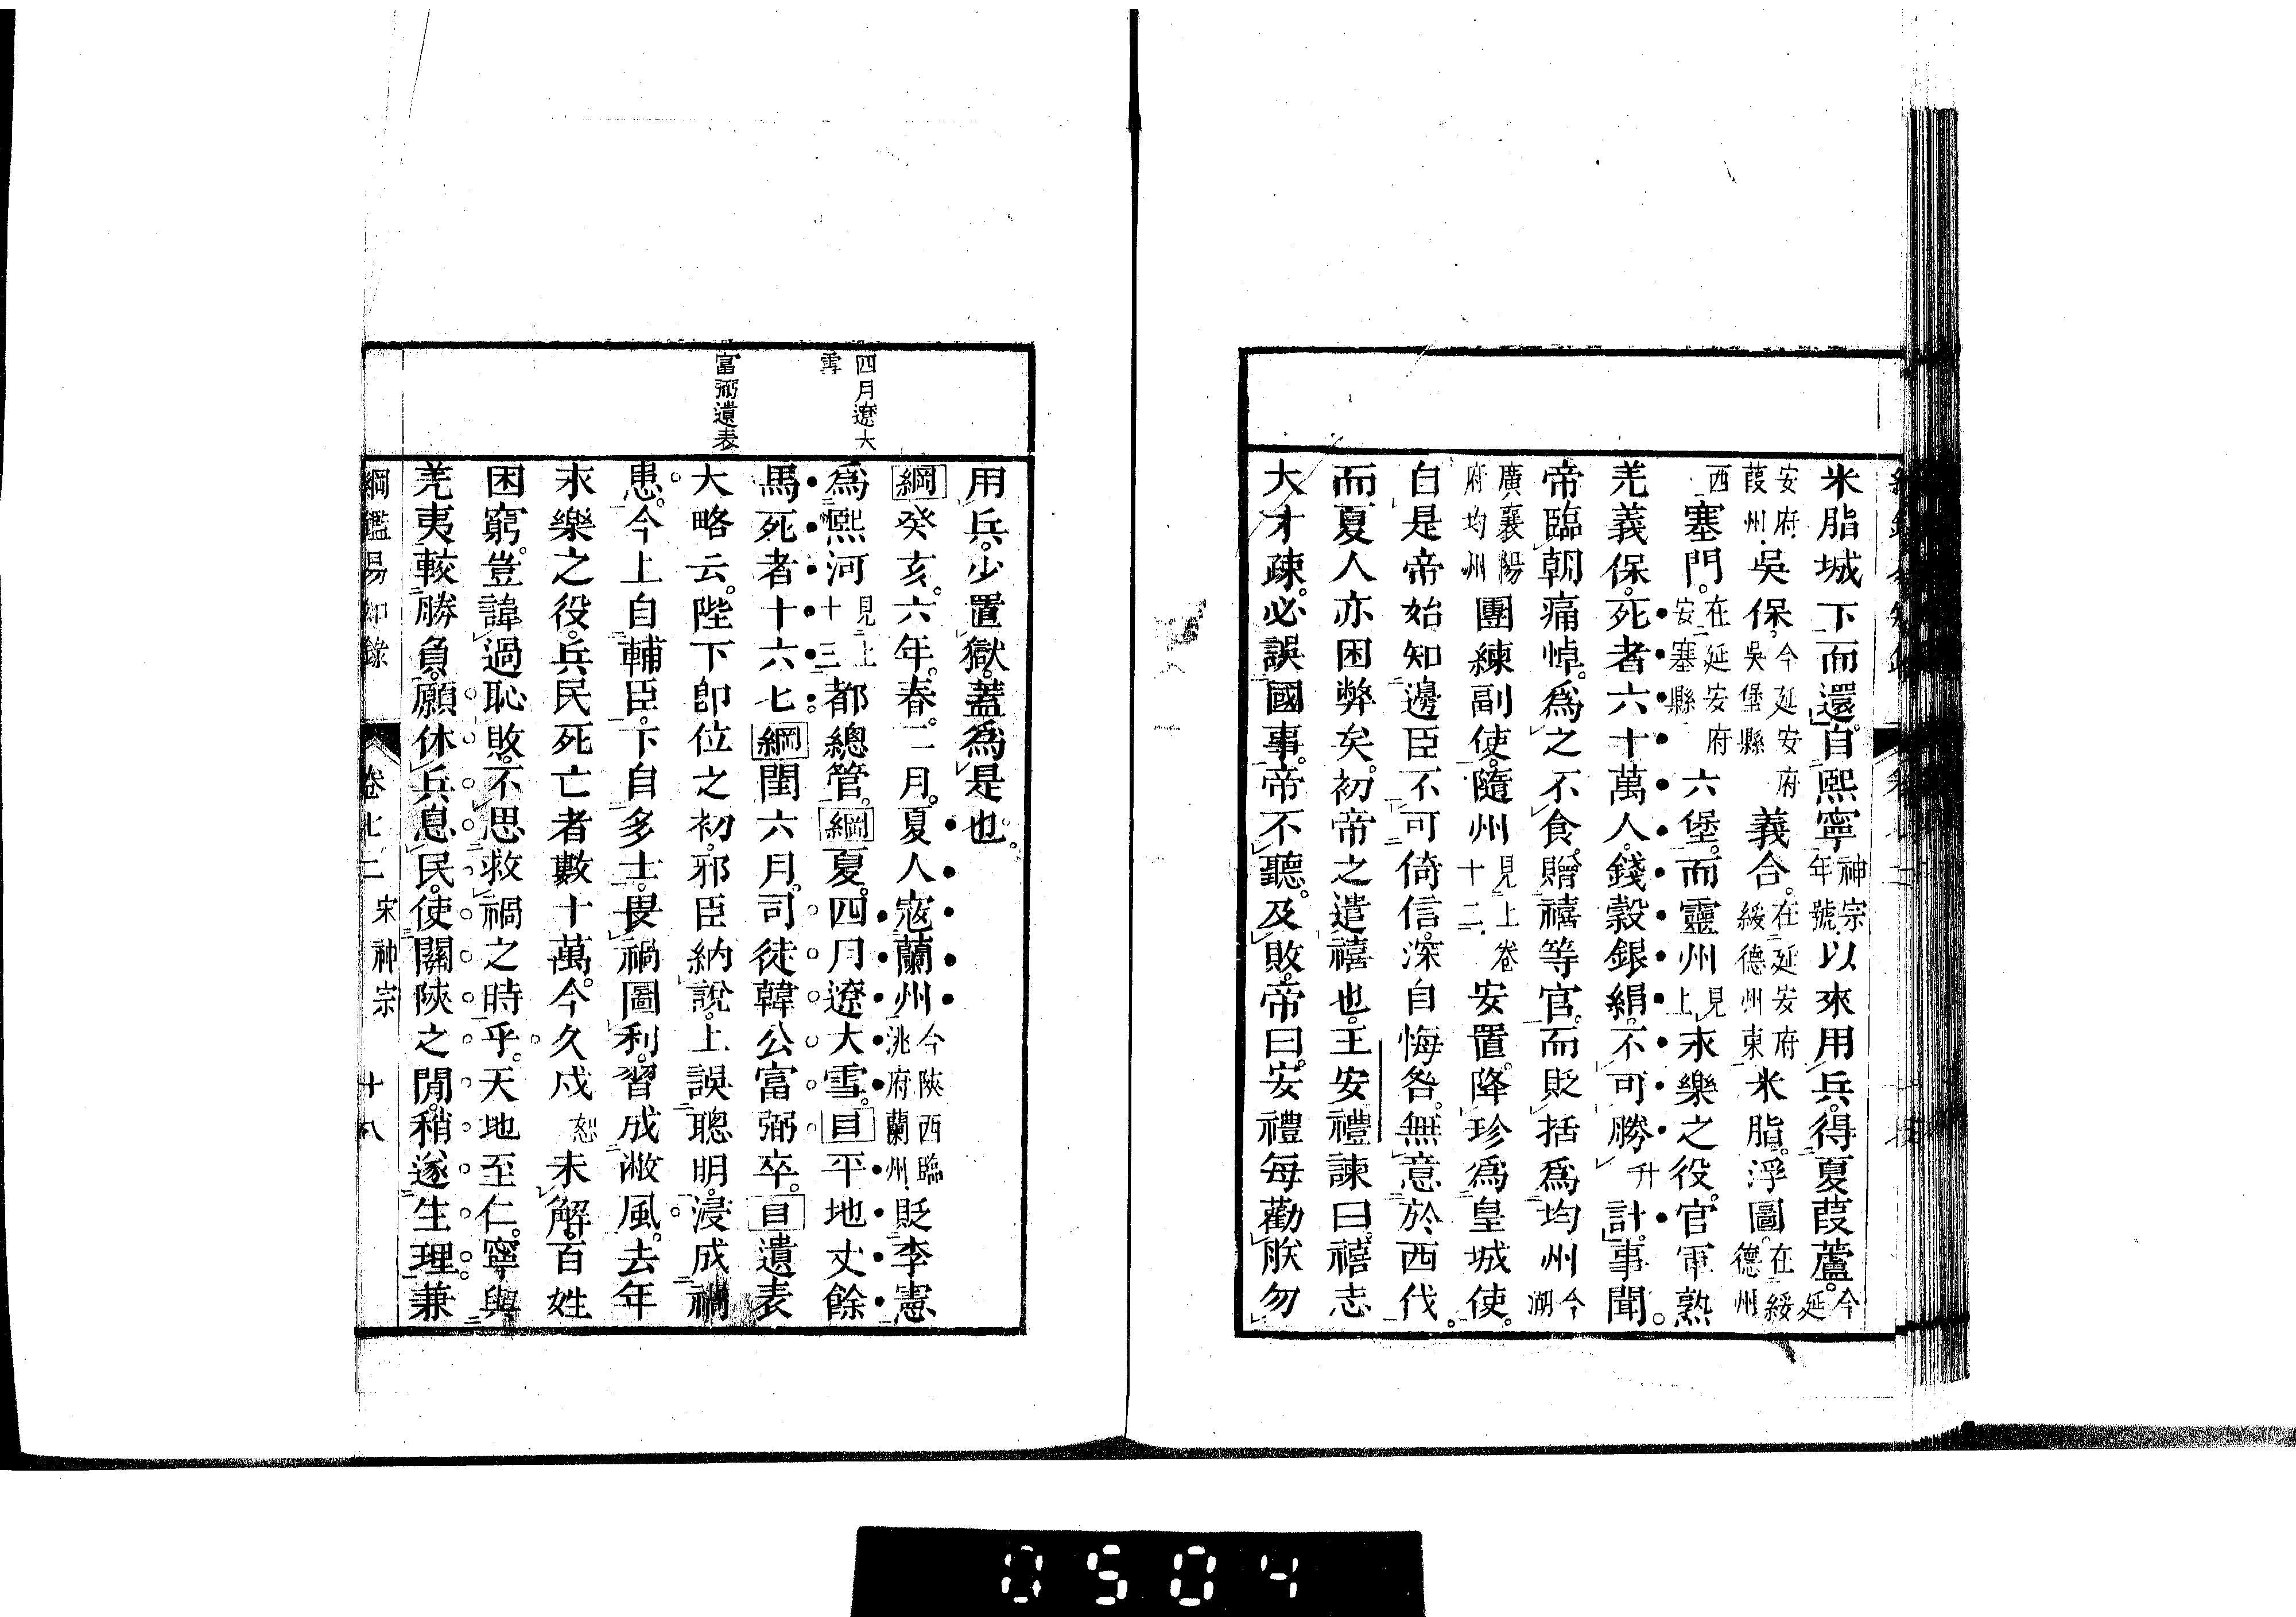 米脂城下而還。自熙寧神宗年號以來用兵。得夏葭蘆。今延
安府葭州吳保。今延安府吳堡縣義合。在延安府綏德州東米脂。浮圖。在綏德州
西塞門。在延安府安塞縣六堡。而靈州見上永樂之役。官軍熟
羌義保。死者六十萬人。錢穀銀絹。不可勝升計。事聞。
帝臨朝痛悼。為之不食。贈禧等官。而貶括為均州今湖
廣襄陽府均州團練副使。隨州見上卷十二安置。降珍為皇城使。
自是帝始知邊臣不可倚信。深自悔咎。無意於西伐。
而夏人亦困弊矣。初帝之遣禧也。王安禮諫曰。禧志
大才疎。必誤國事。帝不聽。及敗。帝曰。安禮每勸朕勿
用兵。少置獄。蓋為是也。
綱癸亥。六年。春。二月。夏人寇蘭州今陝西臨洮府蘭州貶李憲
為熙河見上十三都總管。綱夏。四月遼大雪。目平地丈餘
馬死者十六七綱閏六月。司徒韓公富弼卒。目遺表
大略云。陛下卽位之初。邪臣納說。上誤聰明。浸成禍
患。今上自輔臣。下自多士。畏禍圖利。習成敝風。去年
永樂之役。兵民死亡者數十萬。今久戍恕未解。百姓
困窮。豈諱過恥敗。不思救禍之時乎。天地至仁。寧與
羌夷較勝負。願休兵息民。使關陝之閒。稍遂生理。兼
四月遼大
雪
富弼遺表
綱鑑易知錄 卷七二 宋神宗 十八
0504